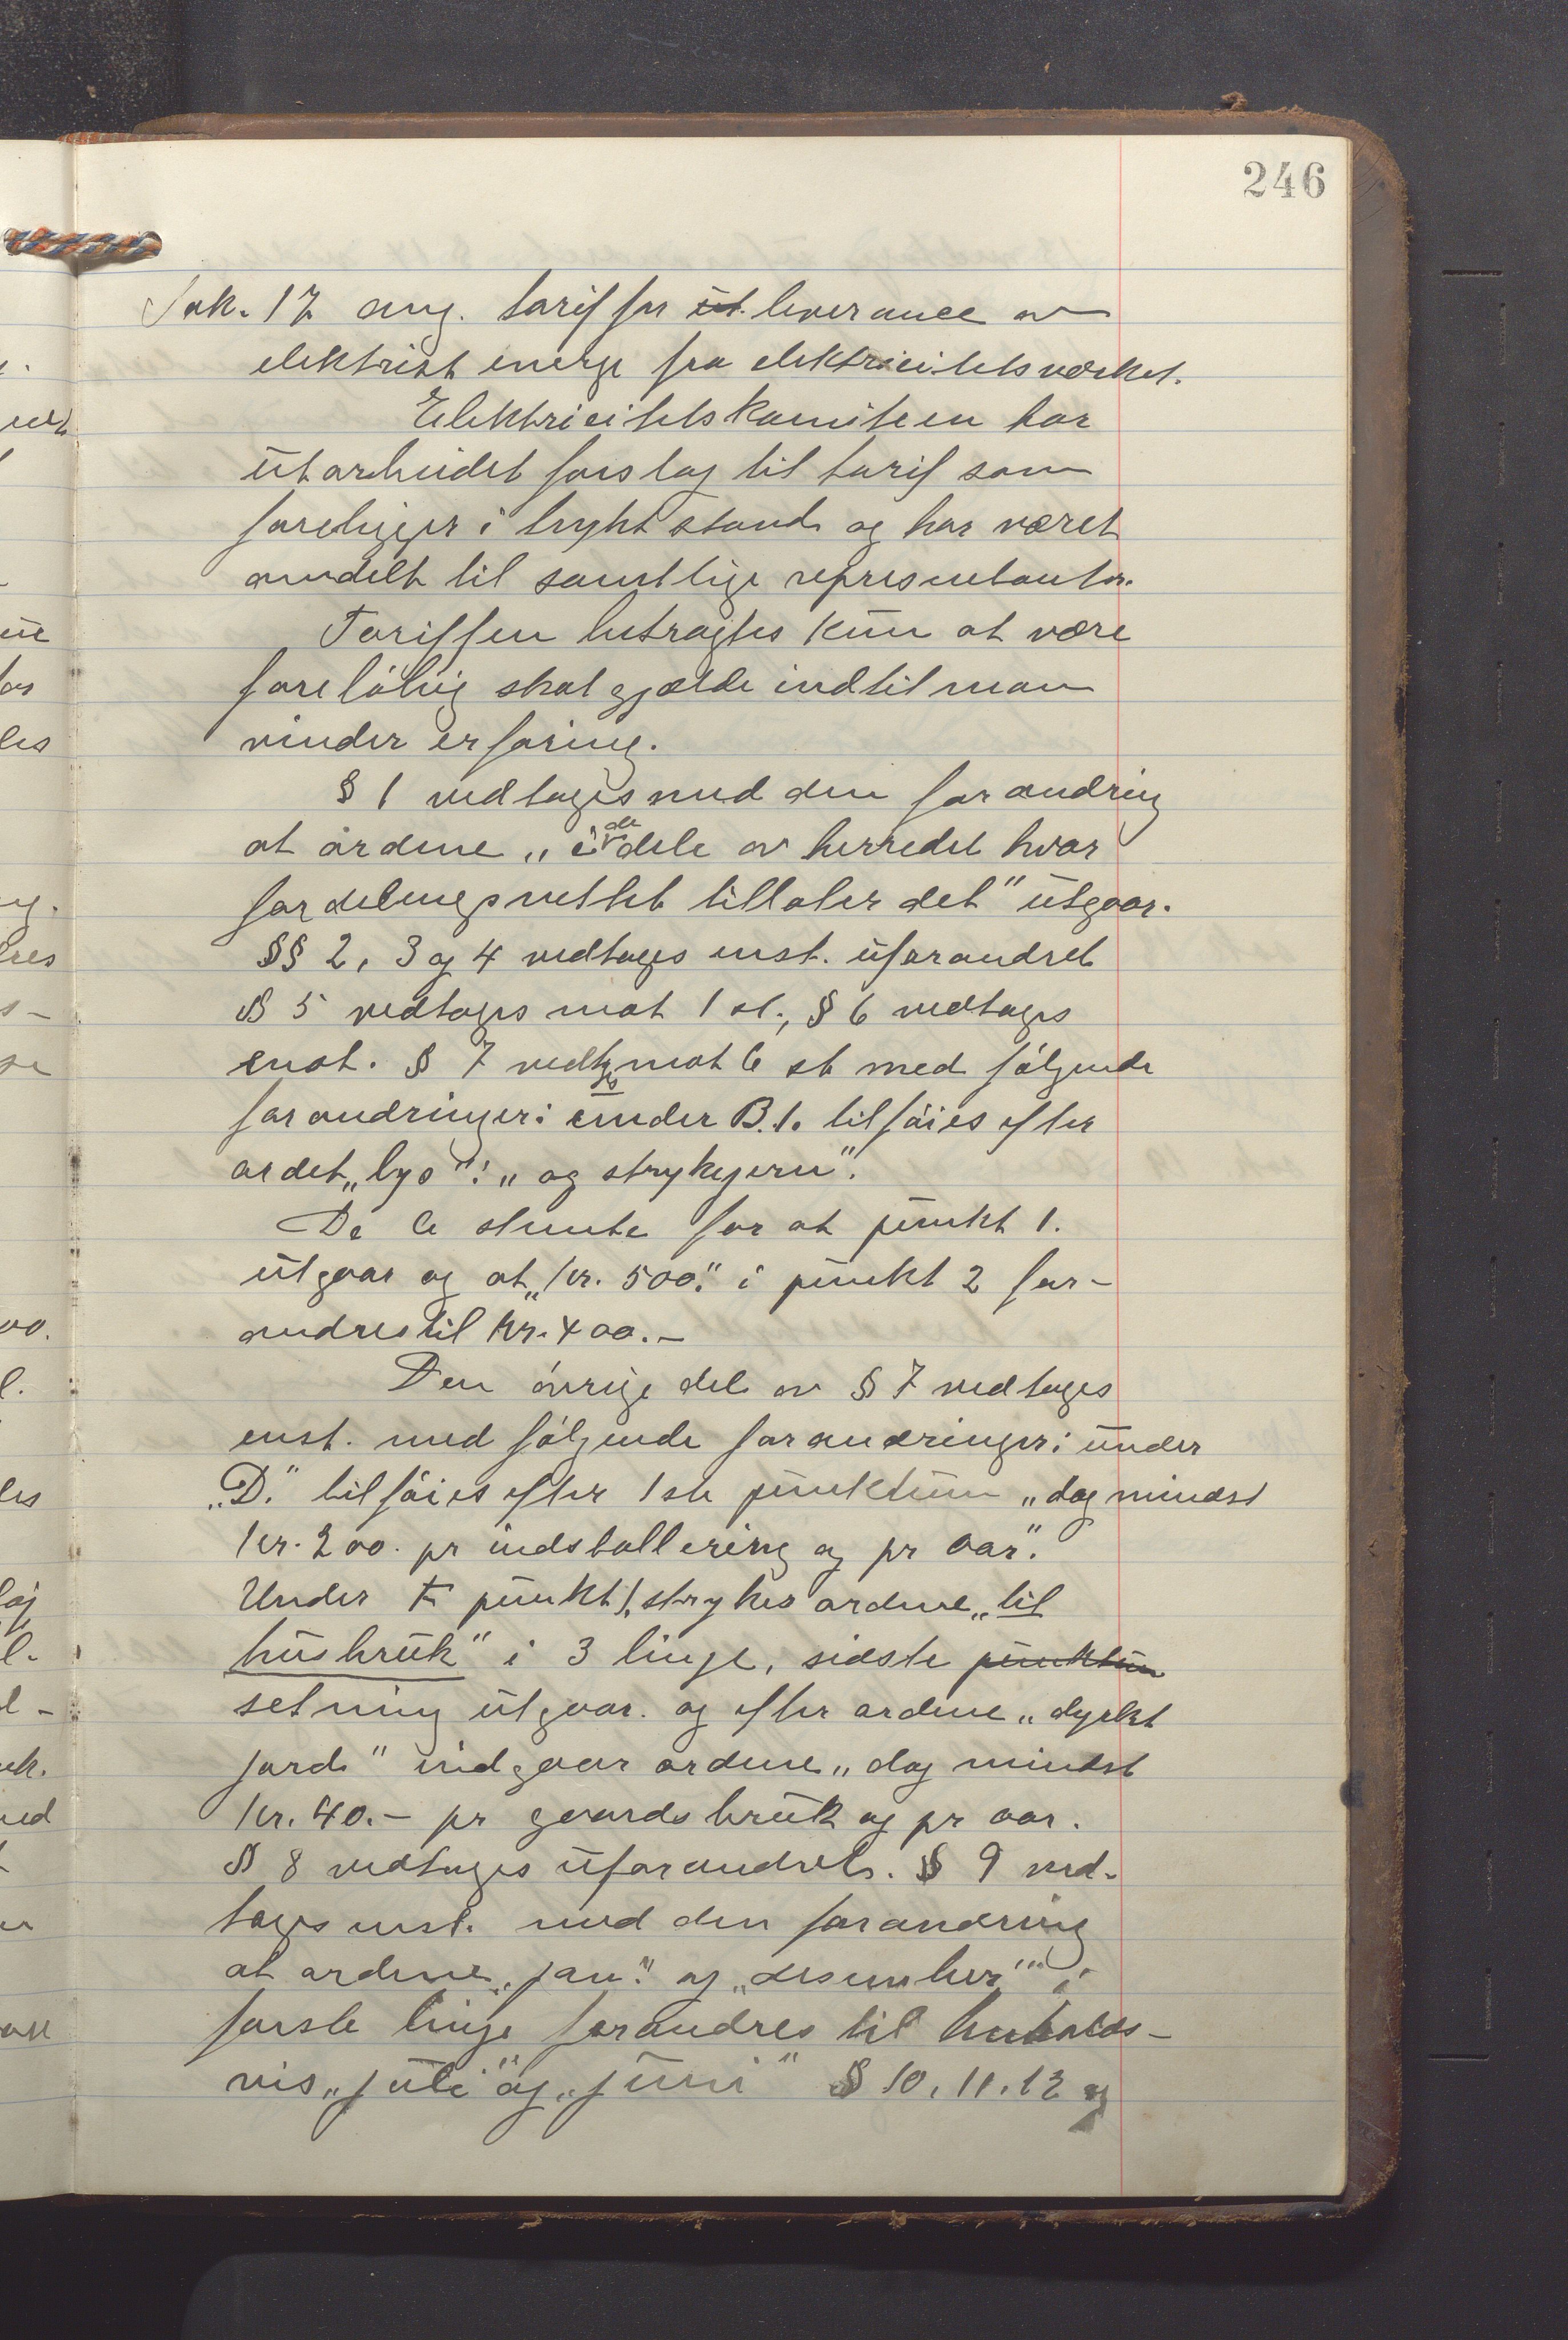 246
Sak. 17 ang. tarif for ut. leverance av
elektrisk energi fra elektricitetsverket.
Elektricitetskomiteen har
utarbeidet forslag til tarif som
foreligger i trykt stand og har været
omdelt til samtlige representanter.
Tariffen betragtes kun at være
foreløbig skal gjælde indtil man
vinder erfaring.
§ 1 vedtages med den forandring
at ordene „i de dele av herredet hvor
fordelingsnettet tillater det" utgaar.
§§ 2, 3 og 4 vedtages enst. uforandret
§ 5 vedtages mot 1 st., § 6 vedtages
enst. § 7 vedtges mot 6 st med følgende
forandringer: under B.1. tilføies efter
ordet „lys": „og strykejern".
De 6 stemte for at punkt 1.
utgaar og at „kr. 500." i punkt 2 for-
andres til kr. 400.-
Den øvrige del av § 7 vedtages
enst. med følgende forandringer: under
„D." tilføies efter 1ste punktum „dog mindst
kr. 200. pr indstallering og pr aar".
Under F punkt 1, strykes ordene „til
husbruk" i 3 linje, sidste punktum
setning utgaar. og efter ordene „dyrket
jord" indgaar ordene „dog mindst
kr. 40.- pr gaardsbruk og pr aar.
§ 8 vedtages uforandret. § 9 ved-
tages enst. med den forandring
at ordene „jan." og „desember" i
første linje forandres til henholds-
vis „juli" og „juni" § 10, 11, 12 og